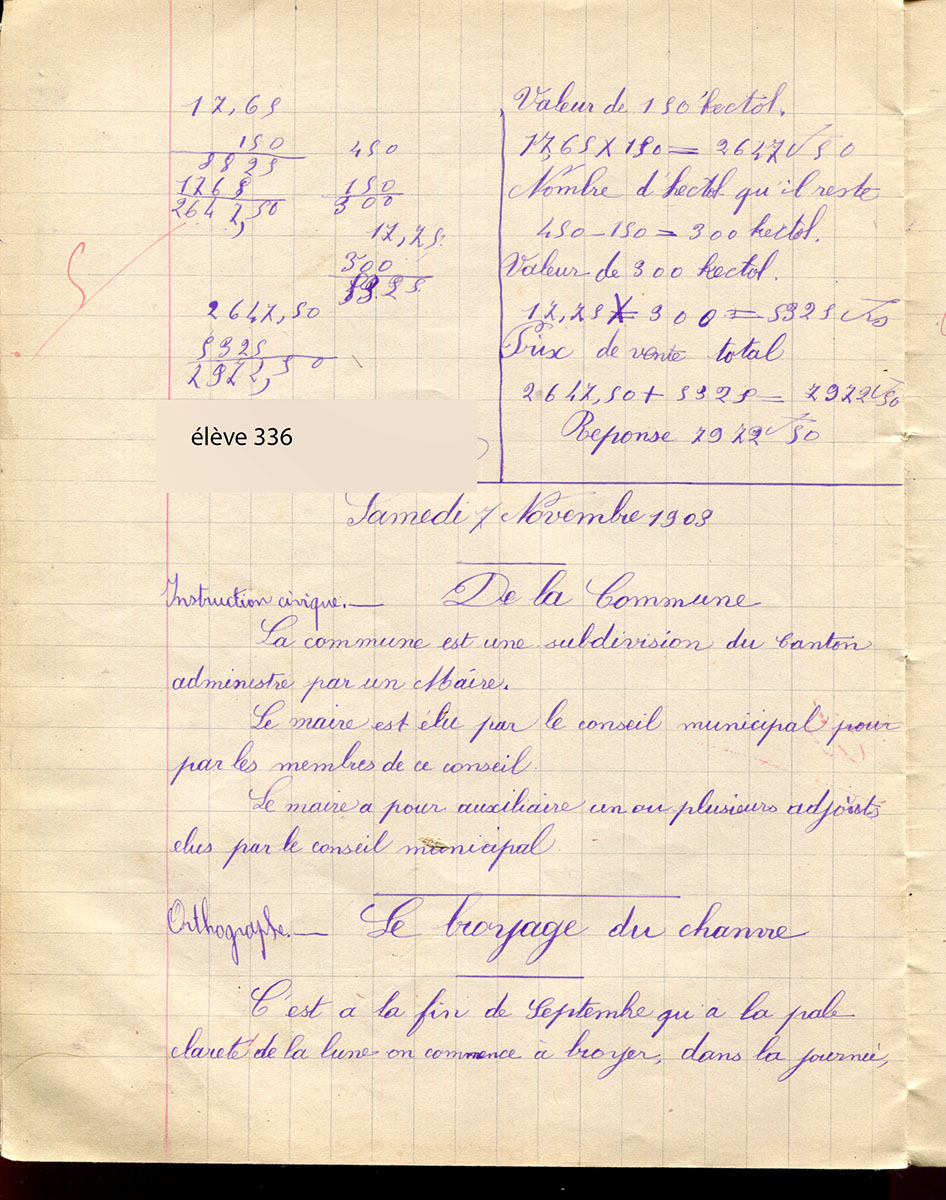 17,65
150
8825
1765
2647,50
450
150
300
17,75
300
5325
2647,50
5325
2972,50
Valeur de 150 hectol.
17,65 X 150 = 2647f50
Nombre d'hectol qu'il reste
450 - 150 = 300 hectol.
Valeur de 300 hectol.
17,75 X 300 = 5325 frs
Prix de vente total
2647,50 + 5325 = 7972f50
Reponse 7972f50
élève 336
Samedi 7 Novembre 1903
Instruction civique.— De la Commune
La commune est une subdivision du Canton
administré par un Maire.
Le maire est élu par le conseil municipal pour
par les membres de ce conseil.
Le maire a pour auxiliaire un ou plusieurs adjoints
elus par le conseil municipal
Orthographe.— Le broyage du chanvre
C'est à la fin de Septembre qu'a la pale
clareté de la lune on commence à broyer, dans la journée,